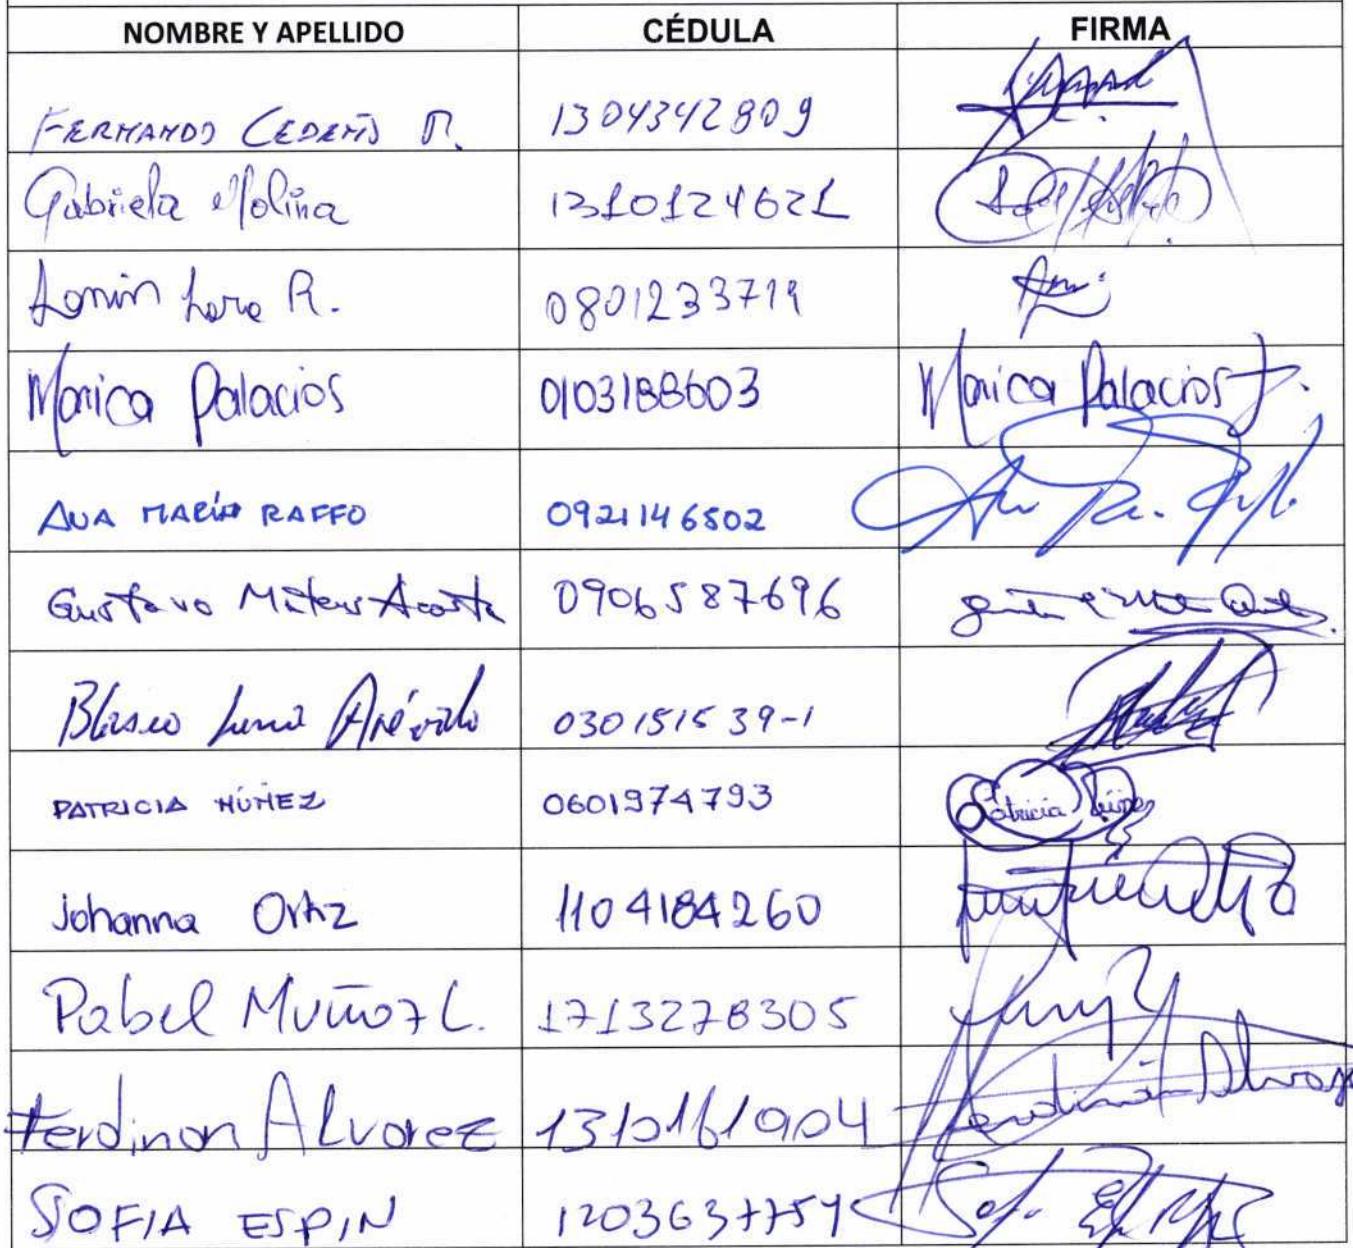 NOMBRE Y APELLIDO CÉDULA FIRMA
FERNANDO CEDEÑO R. 1304342809
Gabriela Molina 1310124621
Lara R. 0801233719
Monica Palacios 0103188603 Monica Palacios J.
ANA MARÍA RAFFO 0921146502
Gustavo Mateus Acosta 0906587696
Blasco Luna Arévalo 030151539-1
PATRICIA NÚÑEZ 0601974793 Patricia Núñez
Johanna Ortiz 1104184260
Pabel Muñoz L. 1713278305
Ferdinan Alvarez 1310161904 Ferdinán Alvarez
SOFIA ESPIN 1203637754